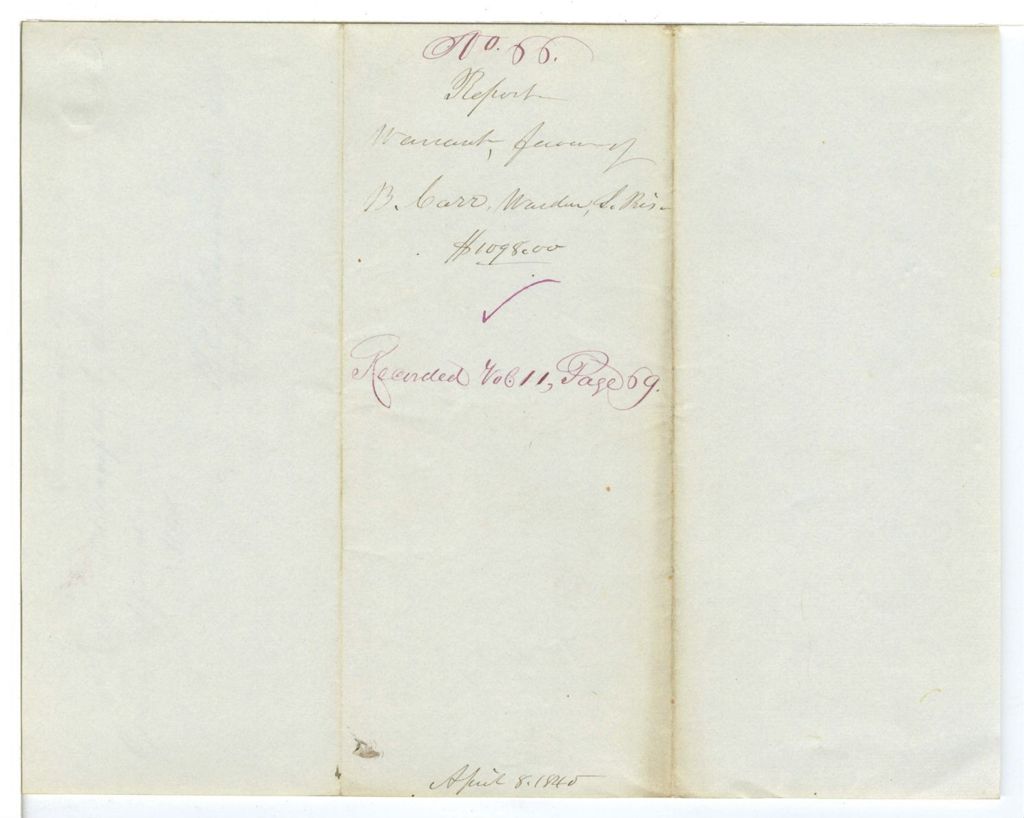 No. 66.
Report
Warrant, favor of
B. Carr, Warden, S. Pris.
$1098.00
Recorded Vol 11, Page 69.
April 8. 1840